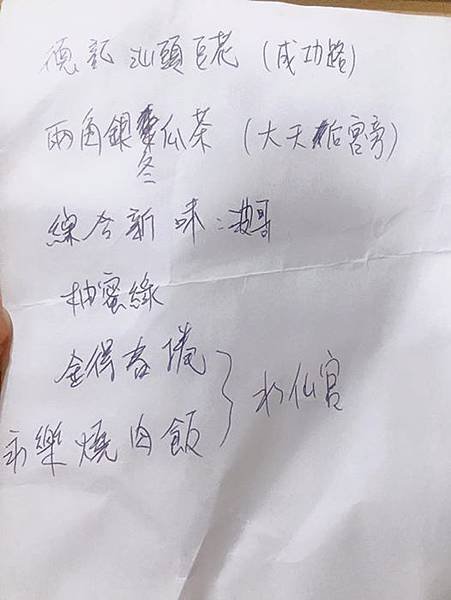 德記汕頭巨花 (成功路)
兩角銀冬瓜茶 (大天后宮旁)
綜合新味:
柚蜜綠
金得春捲
永樂燒肉飯 } 水仙宮